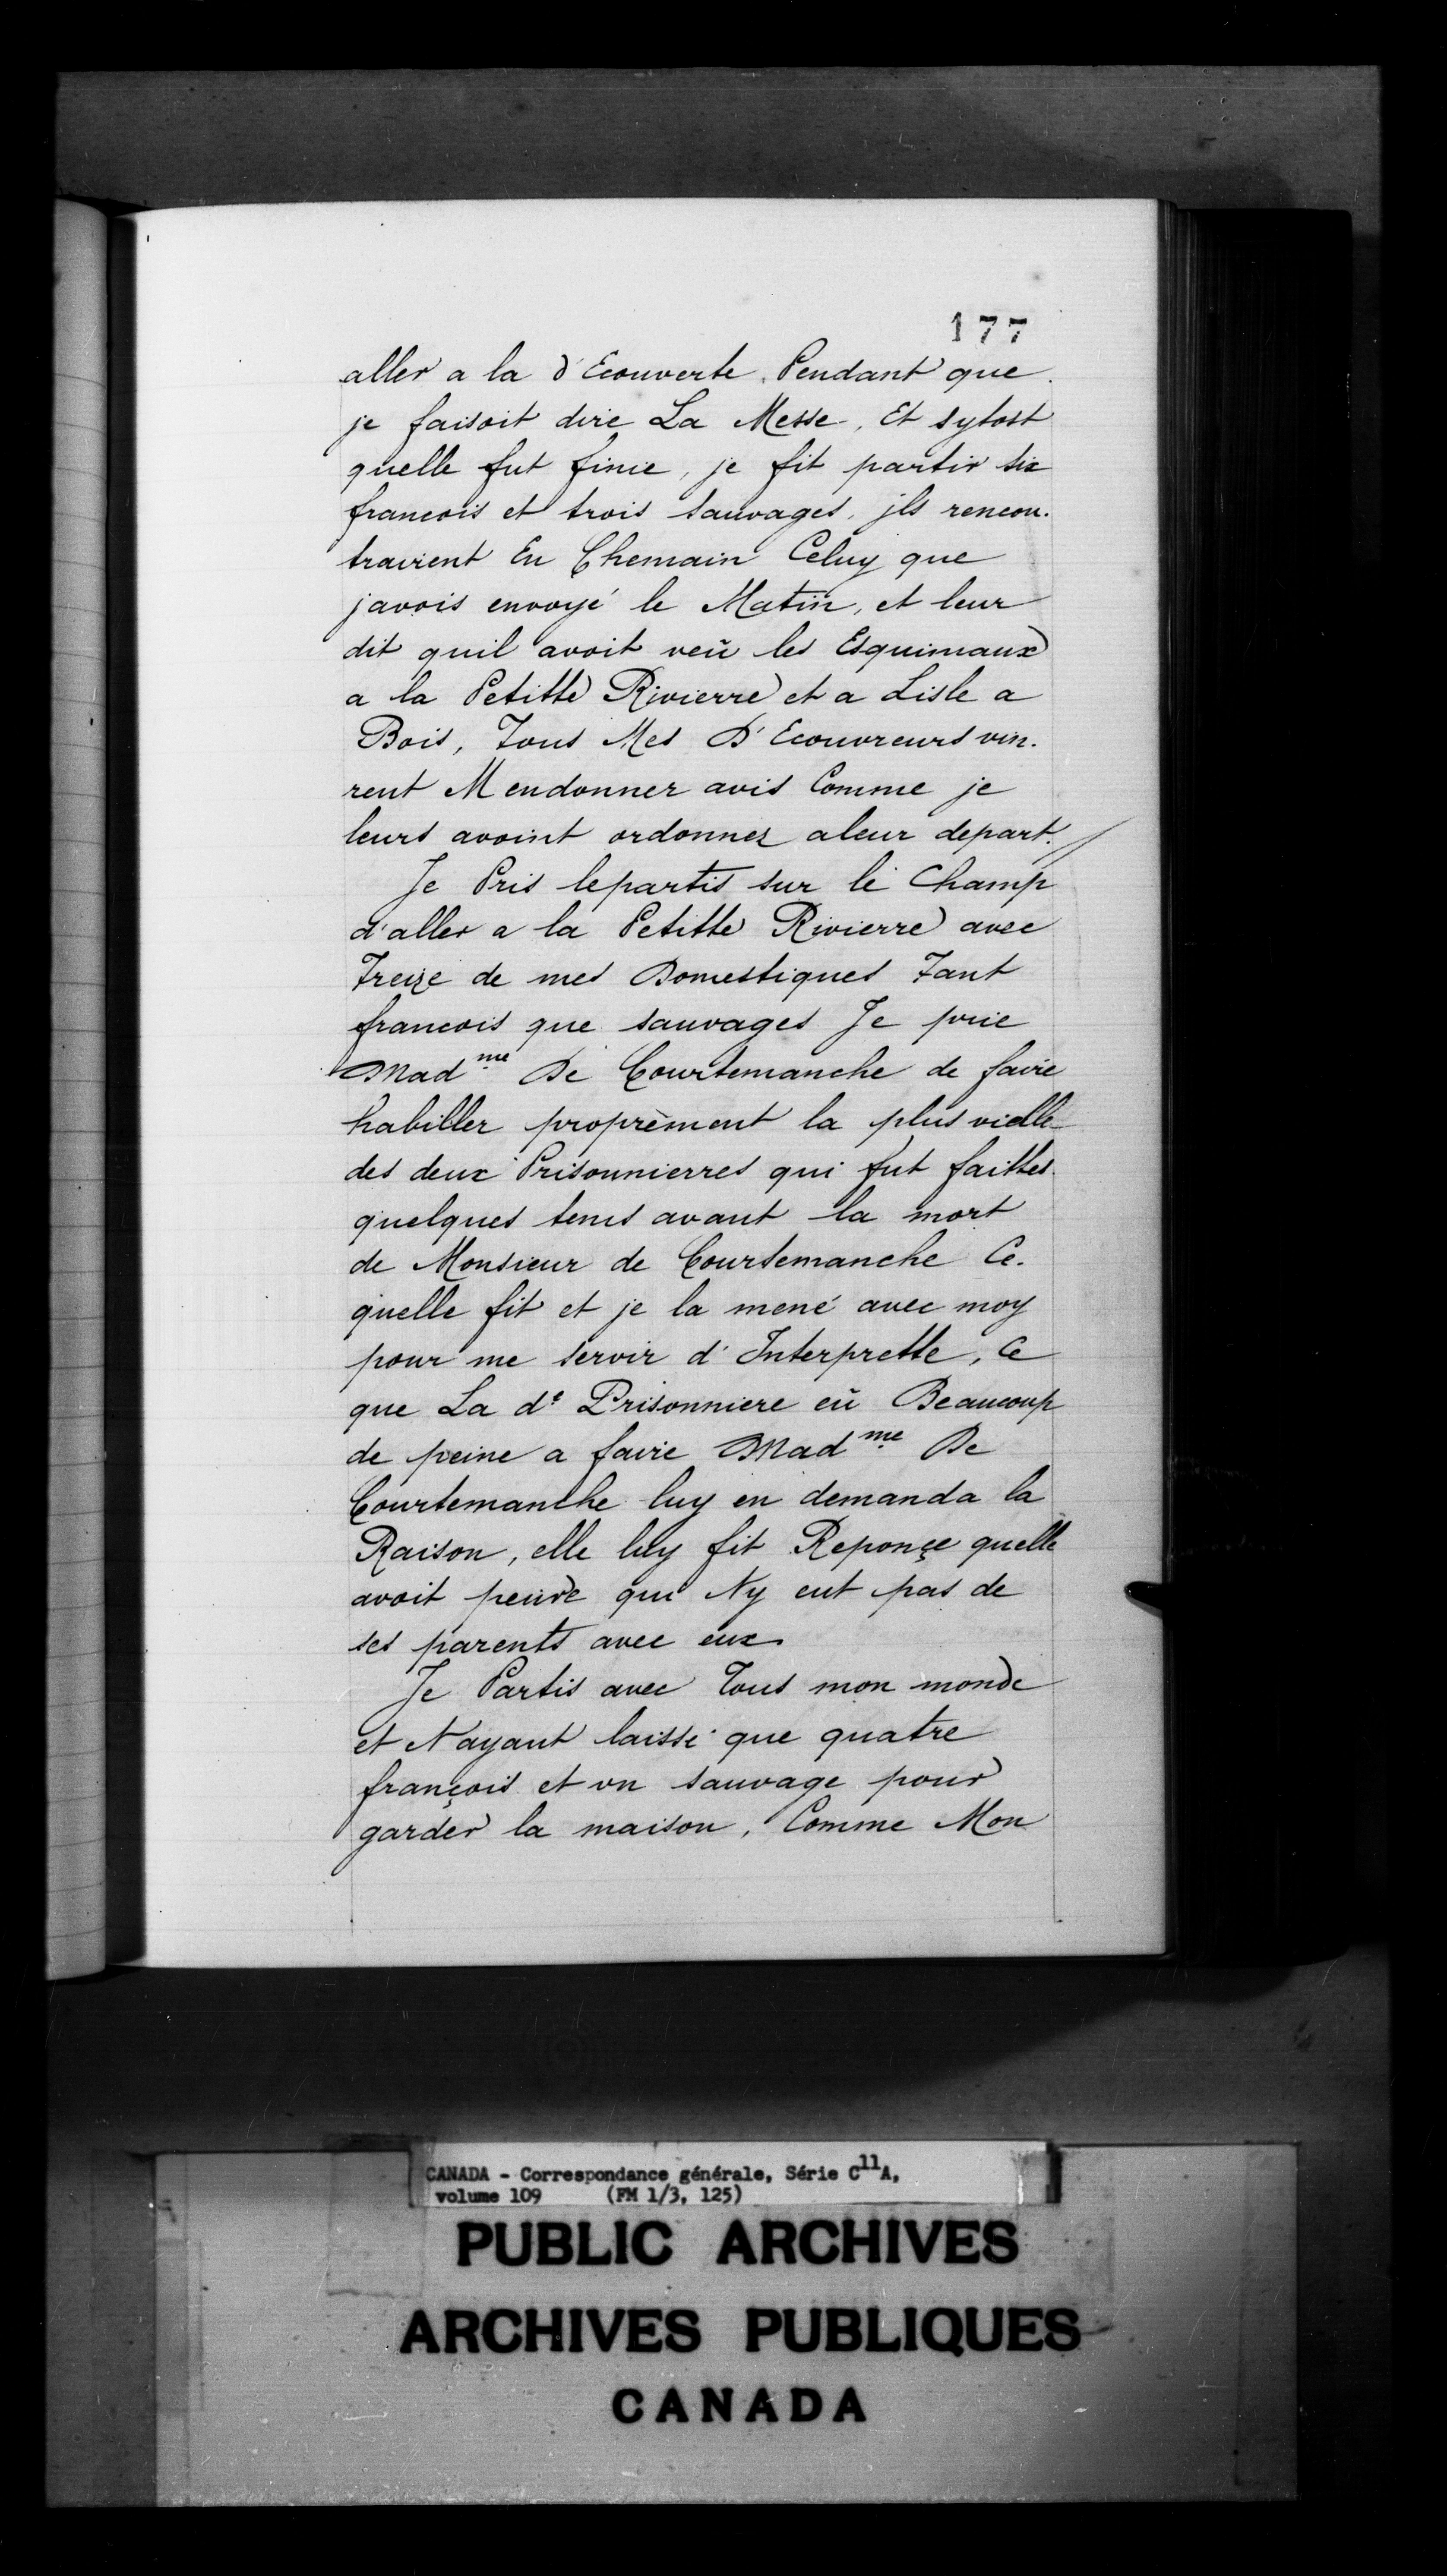 177
aller a la d'Ecouverte. Pendant que
je faisoit dire La Messe, Et sytost
quelle fut finie, je fit partir six
francois et trois sauvages, jls rencon.
trairent En Chemain Celuy que
javois envoyé le Matin, et leur
dit quil avoit veü les Esquimaux
a la Petitte Rivierre et a Lisle a
Bois, Tous Mes D'Ecouvreurs vin.
rent Mendonner avis Comme je
leurs avoint ordonnez aleur depart./
Je Pris lepartis sur le Champ
d'aller a la Petitte Rivierre avec
Treize de mes Domestiques Tant
francois que sauvages Je prie
Mad.me De Courtemanche de faire
habiller proprèment la plus vielle
des deux Prisonnierres qui fut faittes
quelques tems avant la mort
de Monsieur de Courtemanche Ce.
quelle fit et je la mené avec moy
pour me servir d'Interprette, Ce
que La de. Prisonniere eü Beaucoup
de peine a faire Mad.me De
Courtemanche luy en demanda la
Raison, elle luy fit Reponçe quelle
avoit peure qui Ny eut pas de
ses parents avec eux
Je Partis avec Tous mon monde
et Nayant laissé que quatre
françois et vn sauvage pour
garder la maison, Comme Mon
CANADA - Correspondance générale, Série C11A,
volume 109 (FM 1/3, 125)
PUBLIC ARCHIVES
ARCHIVES PUBLIQUES
CANADA